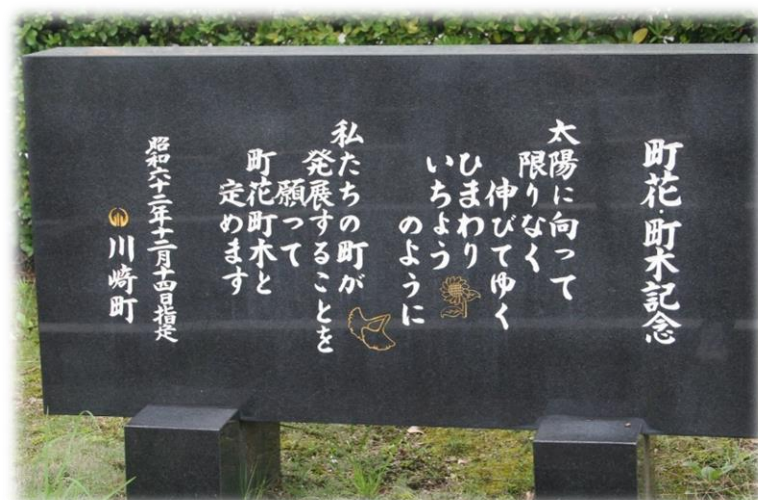 町花・町木記念
太陽に向って
限りなく
伸びてゆく
ひまわり
いちょう
のように
私たちの町が
発展することを
願って
町花町木と
定めます
昭和六十二年十二月十四日指定
川崎町